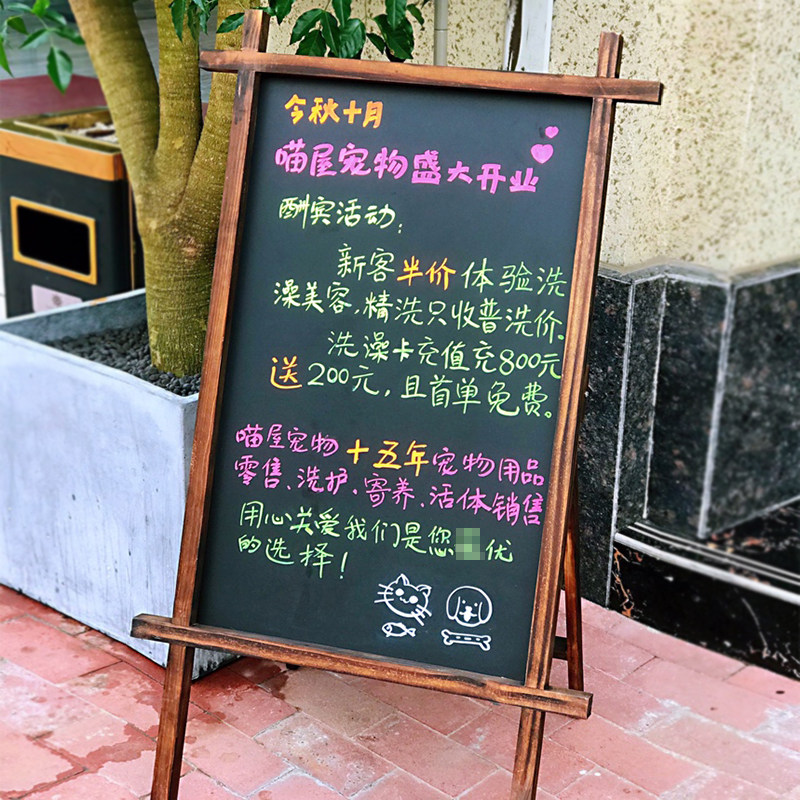 今秋十月
喵屋宠物盛大开业
酬宾活动:
新客半价体验洗
澡美容,精洗只收普洗价.
洗澡卡充值充800元
送200元,且首单免费。
喵屋宠物十五年宠物用品
零售、洗护、寄养、活体销售
用心关爱我们是您优
的选择!